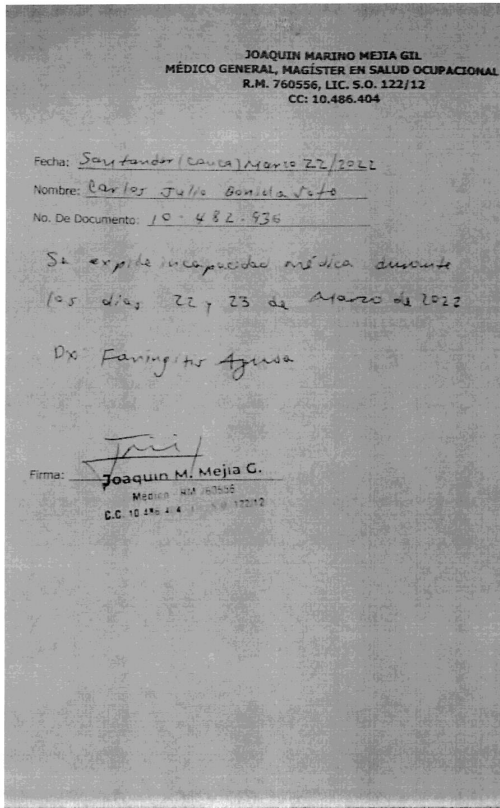 JOAQUIN MARINO MEJIA GIL
MÉDICO GENERAL, MAGÍSTER EN SALUD OCUPACIONAL
R.M. 760556, LIC. S.O. 122/12
CC: 10.486.404
Fecha: Santander (Cauca) Marzo 22/2022
Nombre: Carlos Julio Bonilla Soto
No. De Documento: 10.482.936
Se expide incapacidad médica durante
los dias 22 y 23 de Marzo de 2022
Dx Faringitis Aguda
Firma: Joaquin M. Mejia G.
Médico RM 760556
C.C. 10 486 404 122/12